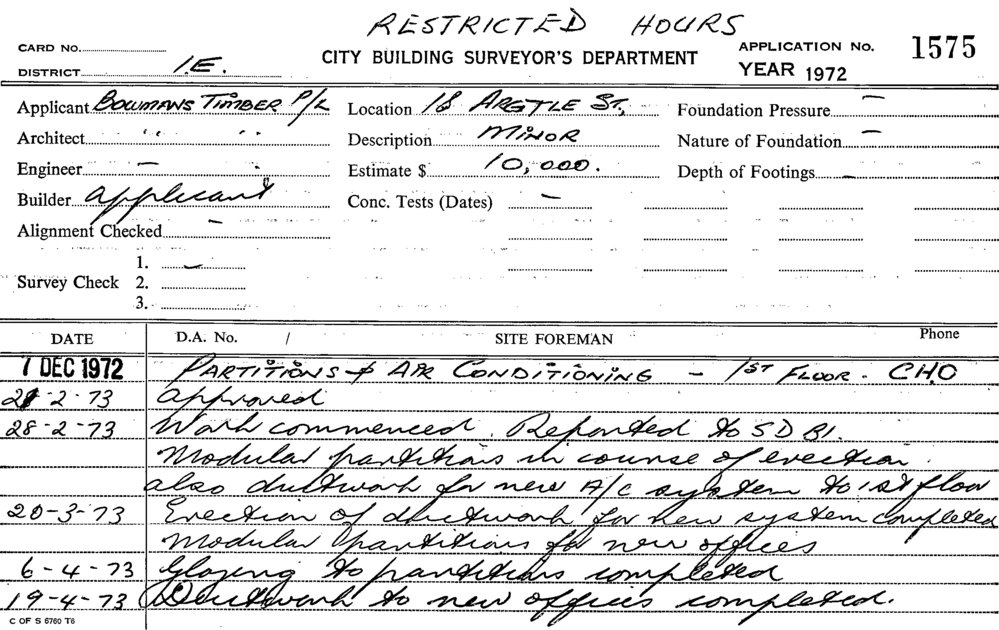 RESTRICTED HOURS
CARD NO.
DISTRICT I.E.
CITY BUILDING SURVEYOR'S DEPARTMENT
APPLICATION No. 1575
YEAR 1972
Applicant BOWMANS TIMBER P/L
Location 18 ARGTLE ST,
Foundation Pressure —
Architect " "
Description MINOR
Nature of Foundation —
Engineer —
Estimate $ 10,000.
Depth of Footings —
Builder applicant
Conc. Tests (Dates) —
Alignment Checked —
Survey Check 1. —
2.
3.
DATE D.A. No. / SITE FOREMAN Phone
7 DEC 1972 PARTITIONS & AIR CONDITIONING - 1ST FLOOR. CHO
21-2-73 Approved
28-2-73 Work commenced. Reported to SDBI.
Modular partitions in course of erection.
also ductwork for new A/c system to 1st floor
20-3-73 Erection of ductwork for new system completed
Modular partitions for new offices
6-4-73 Glazing to partitions completed
19-4-73 Ductwork to new offices completed.
C OF S 6760 T6